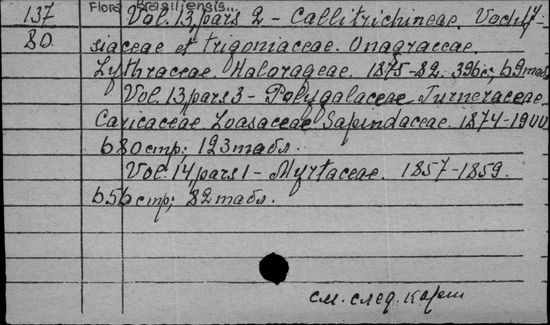 Flora Brasiliensis...
137 Vol. 13, pars 2 - Callitrichineae. Vochy-
80. siaceae et Trigoniaceae. Onagraceae.
Lythraceae. Halorageae. 1875-82. 396c; 69 табл.
Vol. 13, pars 3 - Polygalaceae. Turneraceae
Caricaceae. Loasaceae. Sapindaceae. 1874-1900
680 стр; 123 табл.
Vol. 14 pars 1 - Myrtaceae. 1857-1859.
656 стр; 82 табл.
см. след. карт